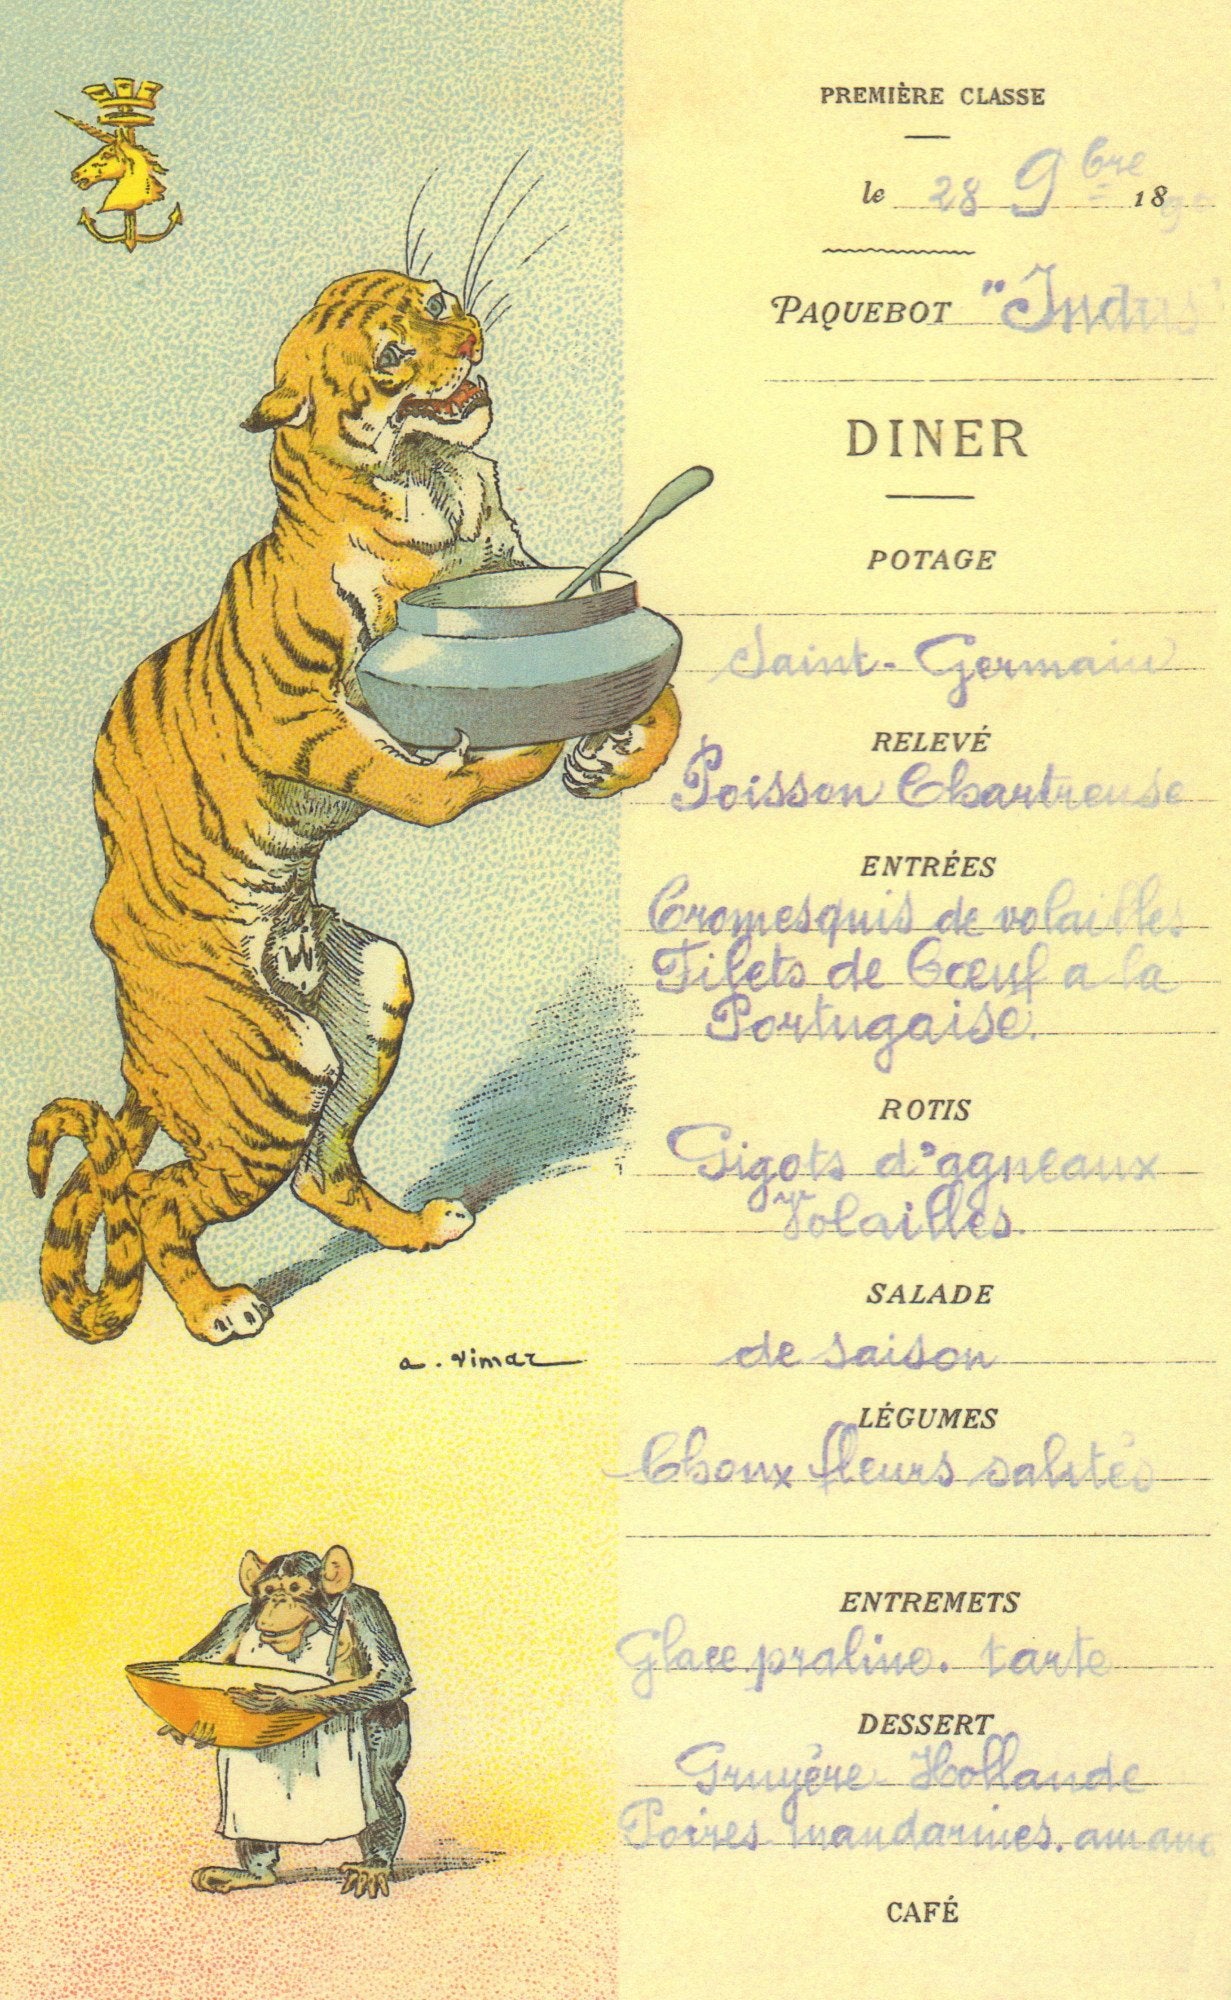 PREMIÈRE CLASSE
le 28 9bre 18
PAQUEBOT "Indus"
DINER
POTAGE
Saint-Germain
RELEVÉ
Poisson Chartreuse
ENTRÉES
Cromesquis de volailles
Filets de Bœuf a la
Portugaise.
ROTIS
Gigots d'agneaux
Volailles.
SALADE
de saison
a. vimar
LÉGUMES
Choux fleurs sautés
ENTREMETS
Glace praline. tarte
DESSERT
Gruyère. Hollande
Poires. mandarines.
CAFÉ